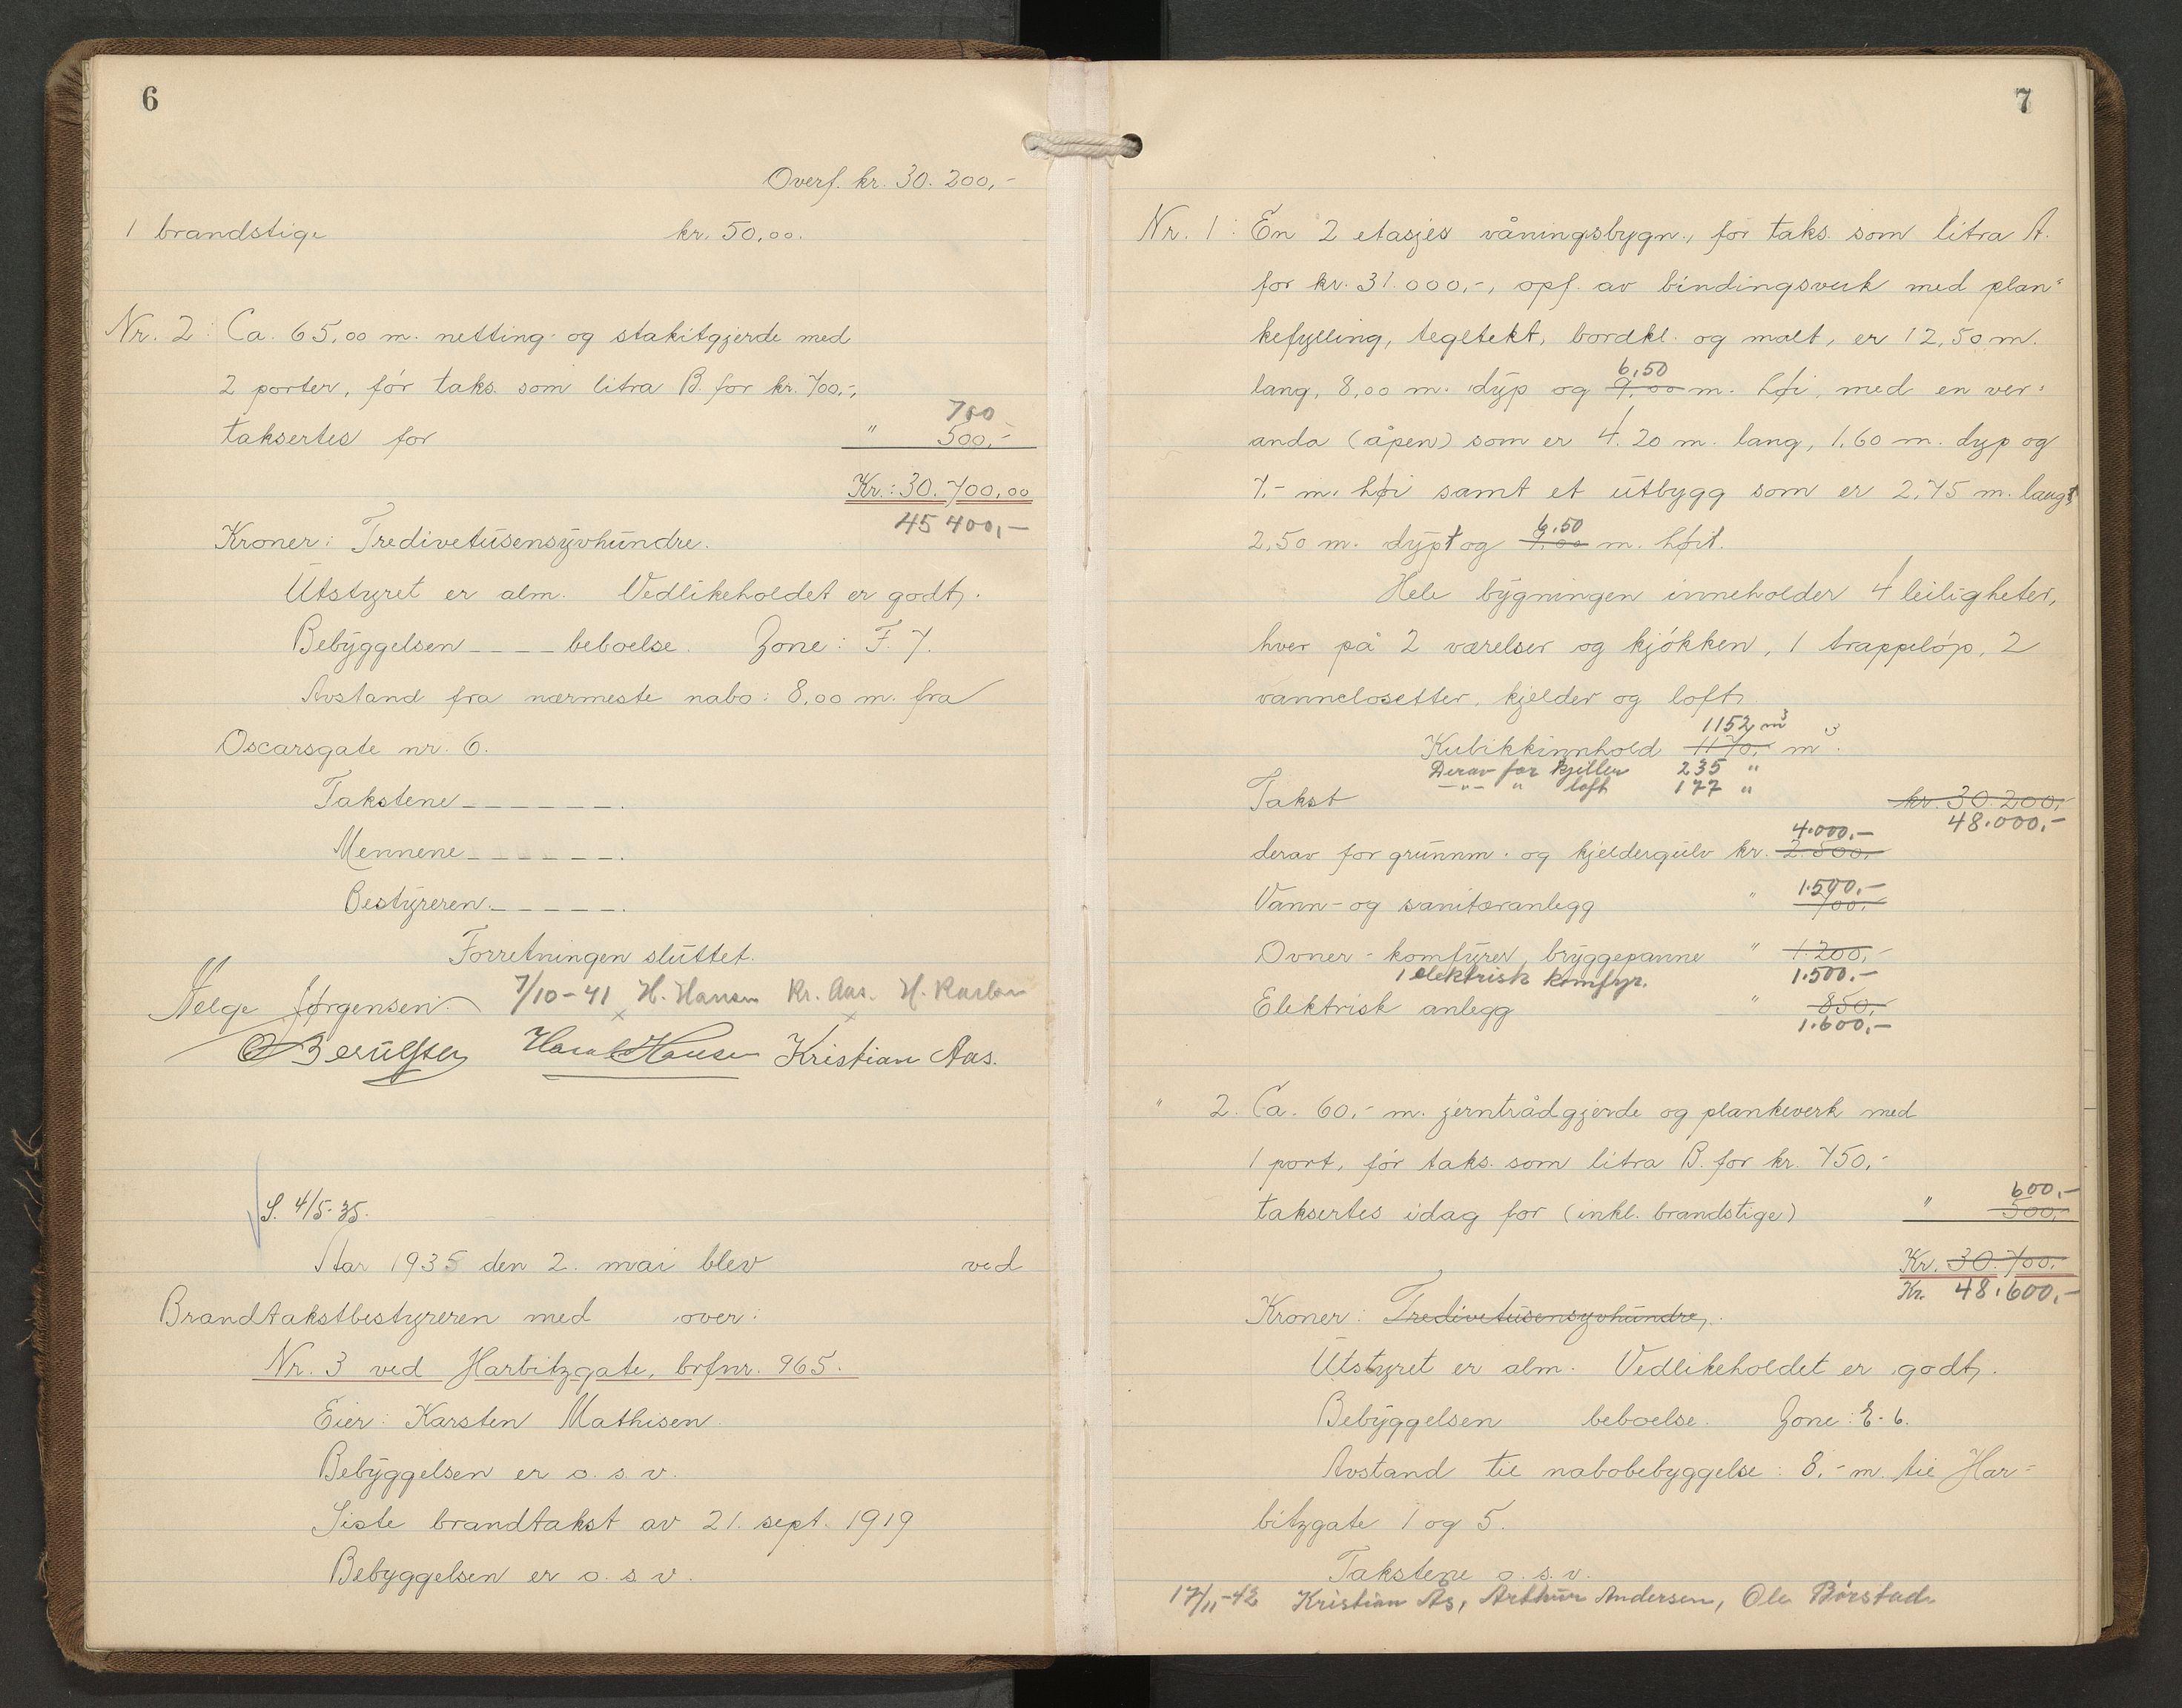 6
Overf. kr. 30.200,-
1 brandstige kr. 50,00.
Nr. 2: Ca. 65,00 m. netting- og stakitgjerde med
2 porter, før taks. som litra B. for kr. 700,-,
700
taksertes for " 500,-
Kr.: 30.700,00
45400,-
Kroner: Tredivetusensyvhundre.
Utstyret er alm. Vedlikeholdet er godt.
Bebyggelsen _ _ _ _ beboelse. Zone: F. 7.
Avstand fra nærmeste nabo: 8,00 m. fra
Oscarsgate nr. 6.
Takstene _ _ _ _ _ _.
Mennene _ _ _ _ _ _.
Bestyreren _ _ _ _ _.
Forretningen sluttet.
Helge Jørgensen. 7/10-41 H. Hansen Kr. Aas. H. Karlsen
Harald Hansen Kristian Aas.
S. 4/5-35.
Aar 1935 den 2. mai blev ved
Brandtakstbestyreren med over:
Nr. 3 ved Harbitzgate, brfnr. 965.
Eier: Karsten Mathisen.
Bebyggelsen er o. s. v.
Siste brandtakst av 21. sept. 1919
Bebyggelsen er o. s. v.
7
Nr. 1: En 2 etasjes våningsbygn., før taks. som litra A.
for kr. 31.000,-, opf. av bindingsverk med plan-
kefylling, tegltekt, bordkl. og malt, er 12,50 m.
6,50
lang, 8,00 m. dyp og 9,00 m. høi, med en ver-
anda (åpen) som er 4.20 m. lang, 1,60 m. dyp og
7,- m. høi samt et utbygg som er 2,75 m. langt,
6.50
2,50 m. dypt og 9,00 m. høit.
Hele bygningen inneholder 4 leiligheter,
hver på 2 værelser og kjøkken, 1 trappeløp, 2
vannclosetter, kjelder og loft.
1152 m3
Kubikkinnhold 1170, m3.
Derav for kjeller 235 "
-"- " loft 177 "
Takst kr. 30.200,-
48.000,-
4.000,-
derav for grunnm. og kjeldergulv kr. 2.500,-
1.500,-
Vann- og sanitæranlegg " 700,-
Ovner - komfyrer, bryggepanne " 1.200,-
1 elektrisk komfyr. 1.500.-
Elektrisk anlegg " 850,-
1.600,-
" 2. Ca. 60,- m. jerntrådgjerde og plankeverk med
1 port, før taks. som litra B. for kr. 750,-
600,-
taksertes idag for (inkl. brandstige) " 500,-
Kr. 30.700,-
Kr. 48.600,-
Kroner: Tredivetusensyvhundre.
Utstyret er alm. Vedlikeholdet er godt.
Bebyggelsen beboelse. Zone: E. 6.
Avstand til nabobebyggelse: 8,- m. til Har-
bitzgate 1 og 5.
Takstene o. s. v.
17/11-42 Kristian Ås, Arthur Andersen, Ole Børstad